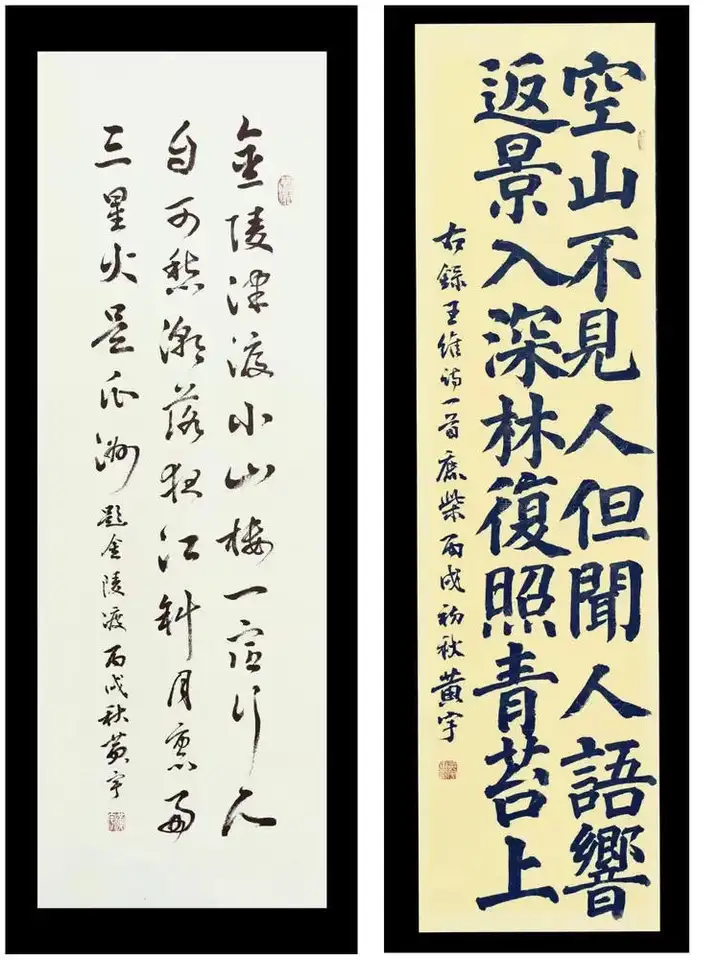 金陵津渡小山樓一宿行人
自可愁潮落夜江斜月裏兩
三星火是瓜洲 題金陵渡 丙戌秋黄宇
空山不見人但聞人語響
返景入深林復照青苔上
右錄王維詩一首鹿柴丙戌初秋黄宇